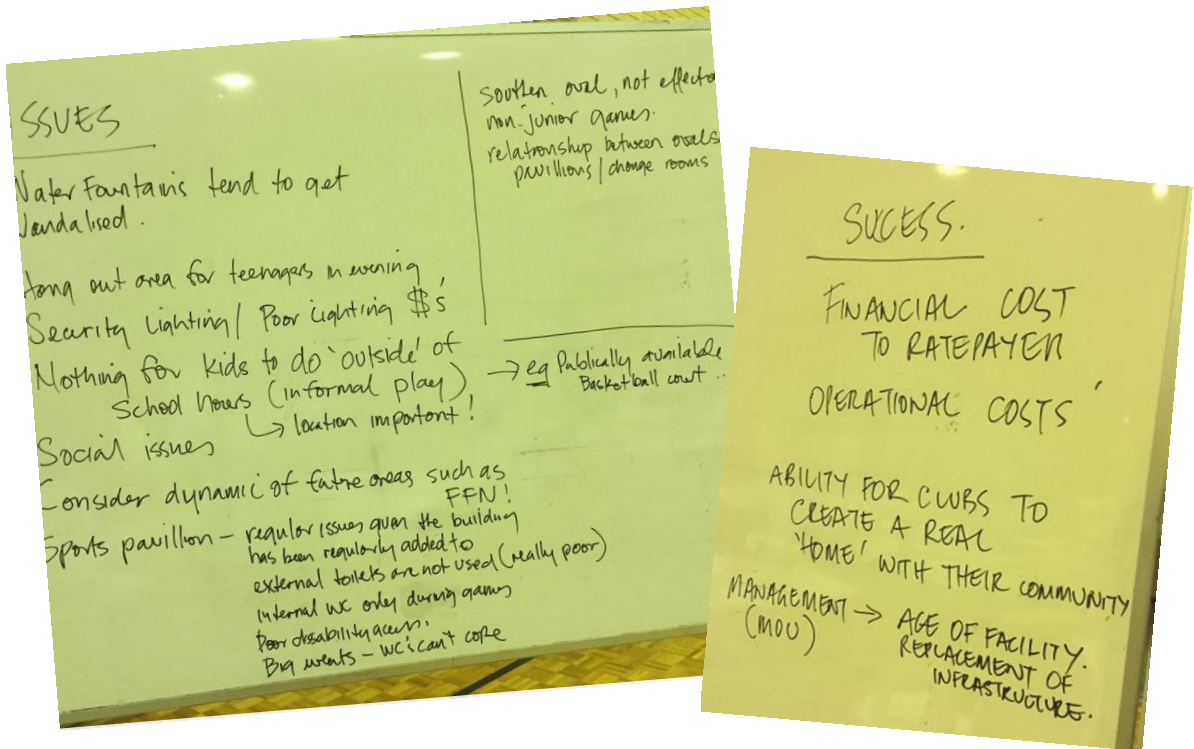 ISSUES
Water Fountains tend to get
Vandalised.
Hang out area for teenagers in evening
Security Lighting / Poor Lighting $s'
Nothing for kids to do 'outside' of
School hours (informal play)
→ location important!
Social issues
Consider dynamic of future areas such as
FFN!
Sports pavillion - regular issues given the building
has been regularly added to
external toilets are not used (really poor)
Internal WC only during games
Poor disability access.
Big events - WC's can't cope
southern oval, not effecte
non-junior games.
relationship between ovals
pavillions / change rooms
→ eg Publically available
Basketball court ..
SUCESS.
FINANCIAL COST
TO RATEPAYER
OPERATIONAL COSTS'
ABILITY FOR CLUBS TO
CREATE A REAL
'HOME' WITH THEIR COMMUNITY
MANAGEMENT → AGE OF FACILITY.
(MOU) REPLACEMENT OF
INFRASTRUCTURE.